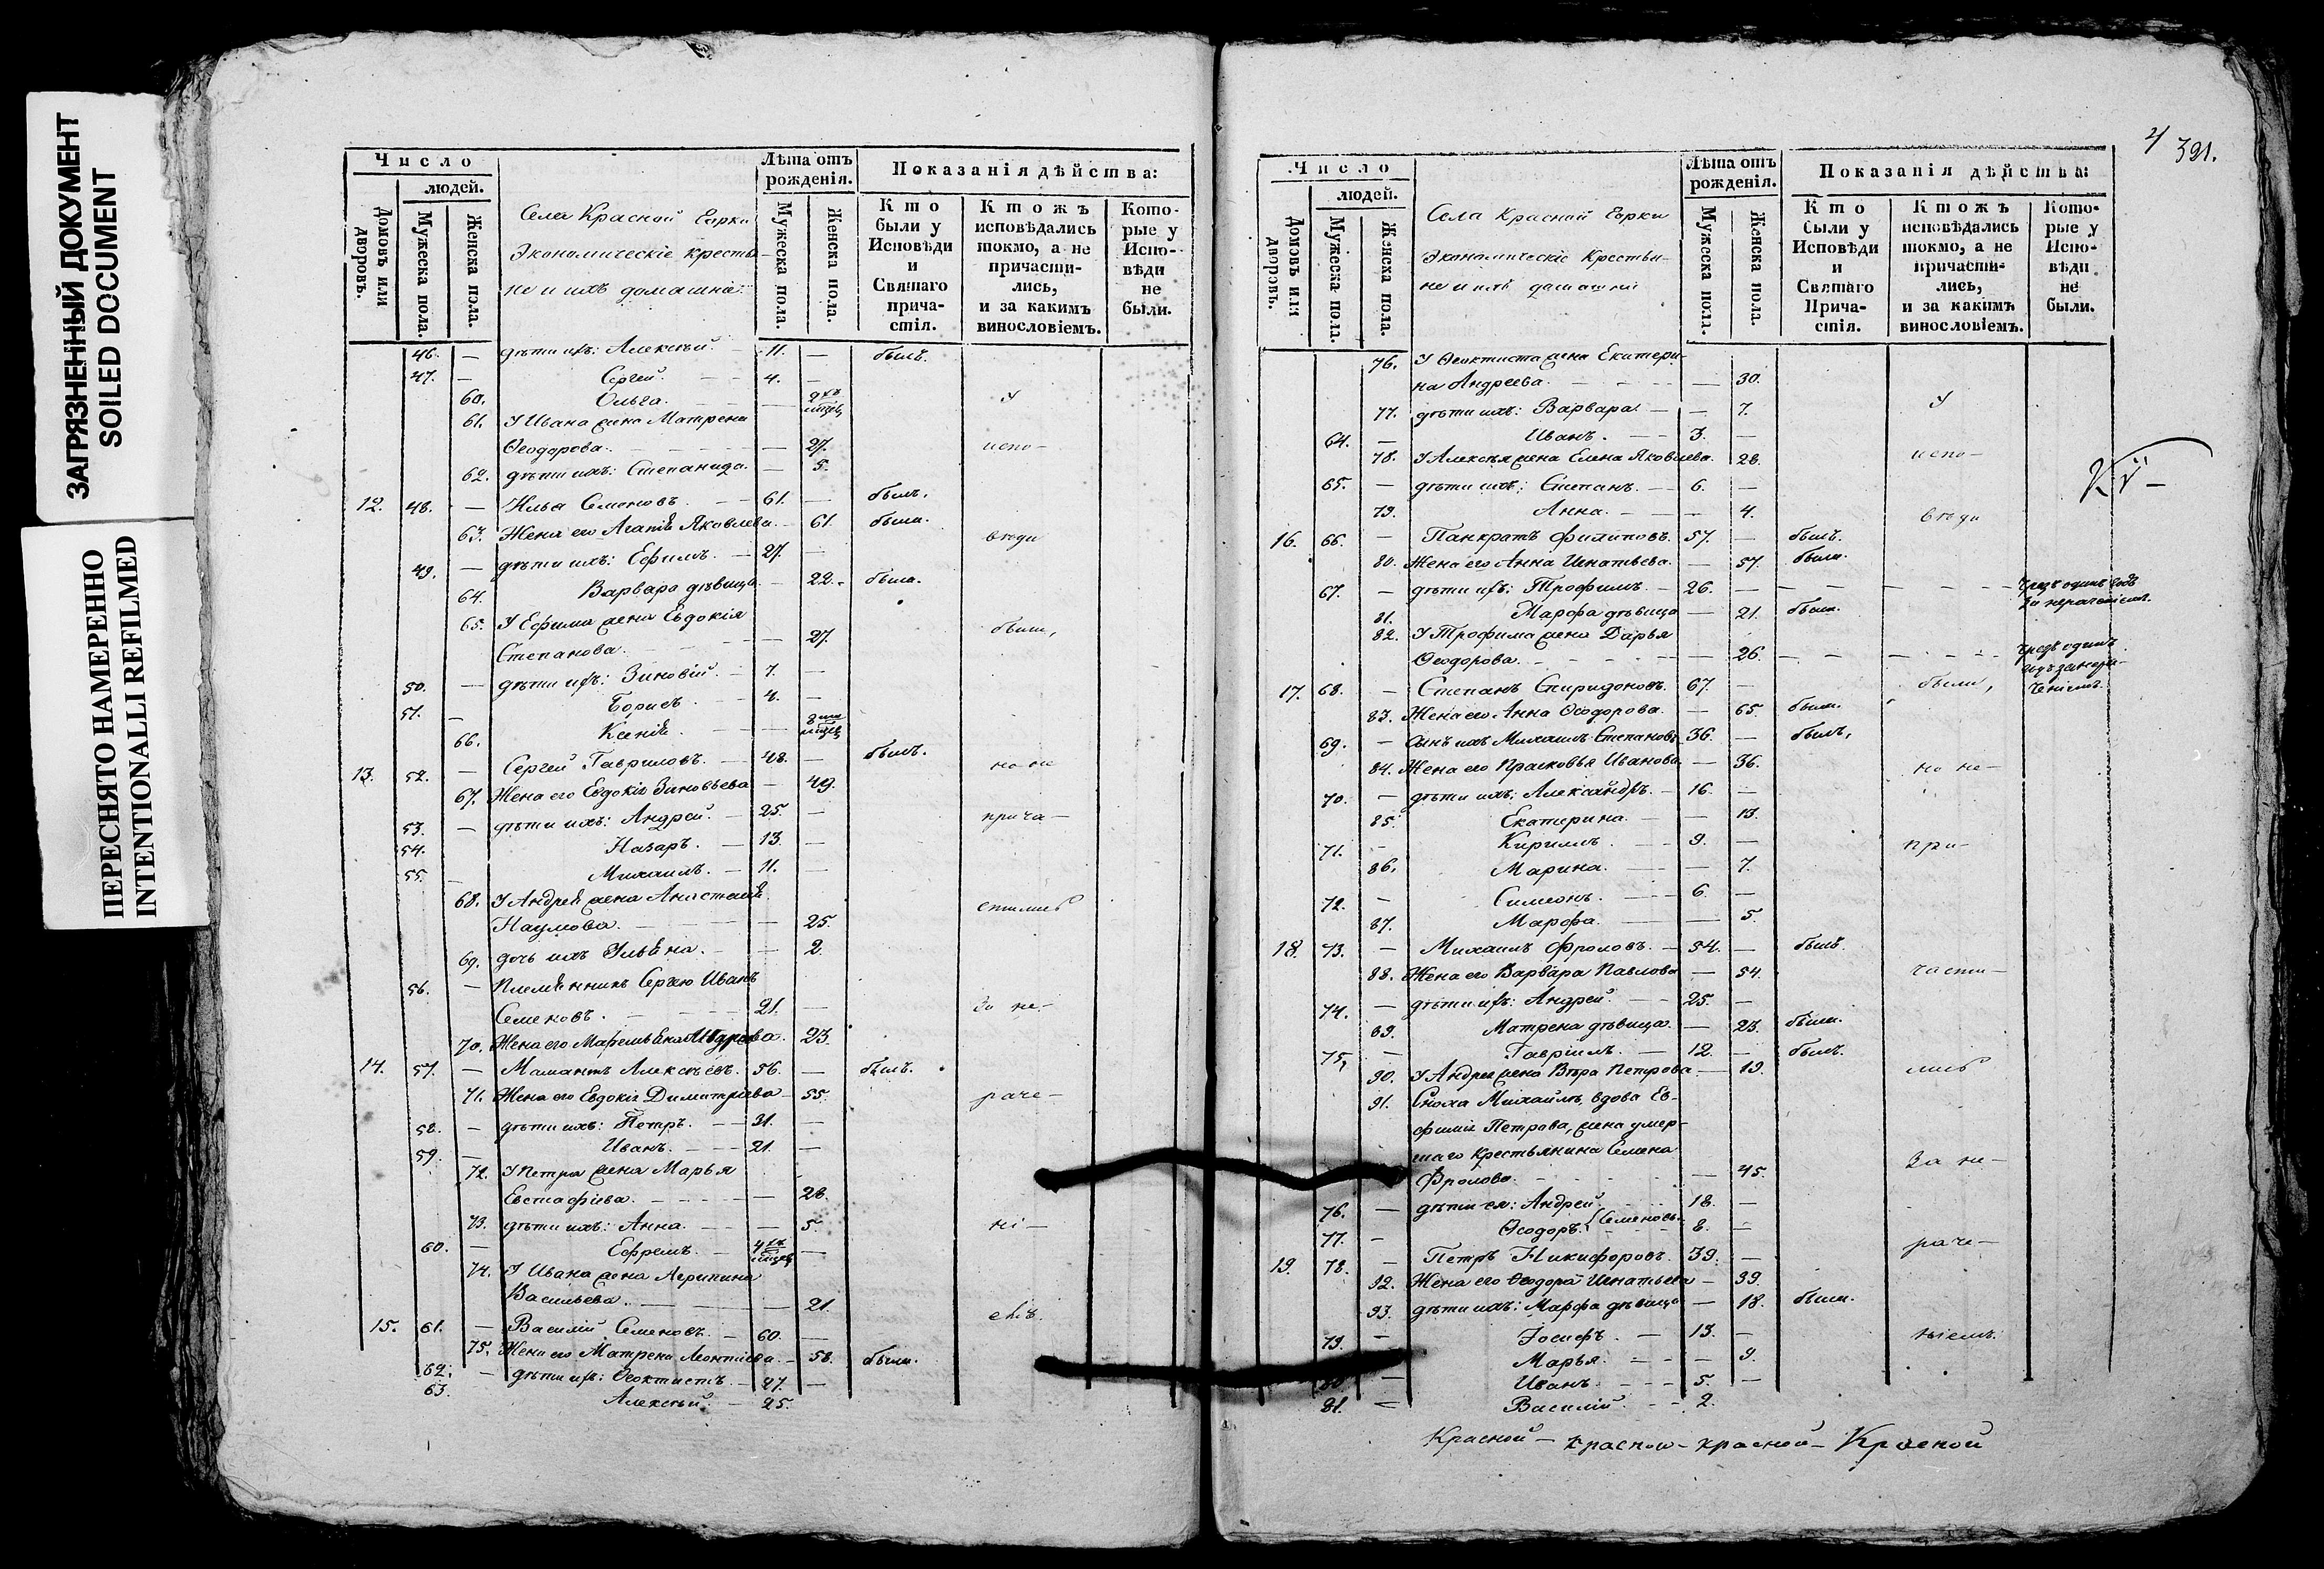 ЗАГРЯЗНЕННЫЙ ДОКУМЕНТ
SOILED DOCUMENT
ПЕРЕСНЯТО НАМЕРЕННО
INTENTIONALLI REFILMED
Число
людей.
Домовъ или дворовъ.
Мужеска пола.
Женска пола.
Села Красной Горки
Экономическіе кресть-
не и ихъ домашніе
Лѣта отъ рожденія.
Мужеска пола.
Женска пола.
Показанія дѣйства:
Кто были у Исповѣди и Святаго причастія.
Ктожъ исповѣдались токмо, а не причастились, и за какимъ винословіемъ.
Которые у Исповѣди не были.
46. — дѣти ихъ: Алексѣй. 11. — былъ.
47. — Сергей. 4. —
60. Ольга. — мѣсяц
61. У Ивана жена Матрена
Ѳеодорова. — 27. испо-
62. дѣти ихъ: Степанида. — 5.
12. 48. — Илья Семеновъ. 61. — былъ.
63. Жена его Агапія Яковлева. — 61. была. вѣди
49. — дѣти ихъ: Ефимъ. 27. —
64. Варвара дѣвица. — 22. была.
65. У Ефима жена Евдокія
Степанова. — 27. были,
50. — дѣти ихъ: Зиновій. 7. —
51. — Борисъ. 4. —
66. Ксенія. — мѣсяц
13. 52. — Сергей Гавриловъ. 48. — былъ. но не
67. Жена его Евдокія Зиновьева — 49.
53. — дѣти ихъ: Андрей. 25. — прича-
54. Назаръ. 13. —
55. — Михаилъ. 11. —
68. У Андрея жена Анастасія стились
Наумова. — 25.
69. дочь ихъ Ульяна. — 2.
56. — Племянникъ Сергею Иванъ
Семеновъ. 21. — За не-
70. Жена его 23.
14. 57. — Мамантъ Алексѣевъ. 56. — былъ.
71. Жена его Евдокія Димитріева — 55. раче-
58. — дѣти ихъ: Петръ. 31. —
59. — Иванъ. 21. —
72. У Петра жена Марья
Евстафіева. — 28.
73. дѣти ихъ: Анна. — 5. ні-
60. — Ефремъ. мѣсяц —
74. У Ивана жена Агрипина
Васильева. — 21. емъ.
15. 61. — Василій Семеновъ. 60. —
75. Жена его Матрена Леонтіева. — 58. была.
62. — дѣти ихъ: Ѳеоктистъ. 27. —
63. Алексѣй. 25.
4 321.
Число
людей.
Домовъ или дворовъ.
Мужеска пола.
Женска пола.
Села Красной Горки
Экономическіе Крестья-
не и ихъ домашніе
Лѣта отъ рожденія.
Мужеска пола.
Женска пола.
Показанія дѣйства:
Кто были у Исповѣди и Святаго Причастія.
Ктожъ исповѣдались токмо, а не причастились, и за какимъ винословіемъ.
Которые у Исповѣди не были.
76. У Ѳеоктиста жена Екатери-
на Андреева. — 30.
77. дѣти ихъ: Варвара. — 7. У
64. — Иванъ. 3. —
78. У Алексѣя жена Елена Яковлева. 28. испо-
65. — дѣти ихъ: Степанъ. 6. —
79. Анна. — 4. вѣди
16. 66. — Панкратъ Филиповъ. 57. — былъ.
80. Жена его Анна Игнатьева. — 57. была.
67. — дѣти ихъ: Трофимъ. 26. — Чрезъ одинъ годъ
за нераченіемъ.
81. Марфа дѣвица — 21. была.
82. У Трофима жена Дарья
Ѳеодорова. — 26. — Чрезъ одинъ
годъ занера-
ченіемъ.
17. 68. — Степанъ Спиридоновъ. 67. — были,
83. Жена его Анна Ѳеодорова. — 65. была.
69. — Сынъ ихъ Михаилъ Степановъ 36. — былъ,
84. Жена его Прасковья Иванова — 36. но не-
70. — дѣти ихъ: Александръ. 16. —
85. Екатерина. — 13.
71. — Кириллъ. 9. — при-
86. Марина. — 7.
72. — Симеонъ. 6. —
87. Марфа. — 5.
18. 73. — Михаилъ Фроловъ. 54. — былъ.
88. Жена его Варвара Павлова — 54. части-
74. — дѣти ихъ: Андрей. 25. —
89. Матрена дѣвица. — 23. была.
75. — Гавріилъ. 12. — былъ.
90. У Андрея жена Вѣра Петрова — 19. лись
91. Сноха Михаилъ, вдова Ев-
фимія Петрова, жена умер-
шаго крестьянина Семена
Фролова. — 45. За не-
76. — дѣти ея: Андрей. 18. —
77. — Ѳеодоръ. Семеновы. 8. —
19. 78. — Петръ Никифоровъ. 39. — раче-
92. Жена его Ѳеодора Игнатьева — 39.
93. дѣти ихъ: Марфа дѣвица — 18. была.
79. — Іосифъ. 13. — ніемъ.
Марья. — 9.
80. — Иванъ. 5. —
81. — Василій. 2.
Красной — красной — красной — Красной